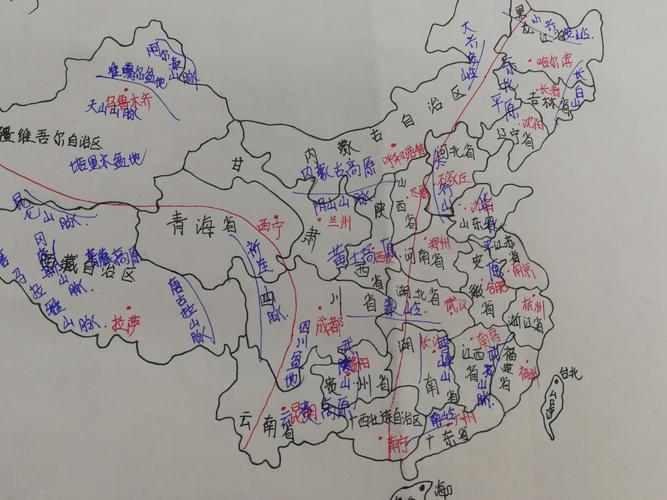 阿尔泰山脉
准噶尔盆地
乌鲁木齐
天山山脉
疆维吾尔自治区
塔里木盆地
昆仑山脉
西藏自治区
喜马拉雅山脉
拉萨
唐古拉山脉
青海省
西宁
甘
肃
兰州
内蒙古自治区
内蒙古高原
呼和浩特
阴山山脉
大兴安岭
小兴安岭
黑龙江省
哈尔滨
东北平原
长春
吉林省
长白山
沈阳
辽宁省
河北省
石家庄
山西省
太原
陕
西
省
黄土高原
济南
山东省
河南省
郑州
江苏省
南京
安
徽
省
合肥
杭州
浙江省
湖北省
武汉
四
川
省
成都
四川盆地
贵
州省
贵阳
云南省
昆明
湖
南
省
长沙
江西省
南昌
福建省
福州
台北
广西壮族自治区
南宁
广东省
广州
海口